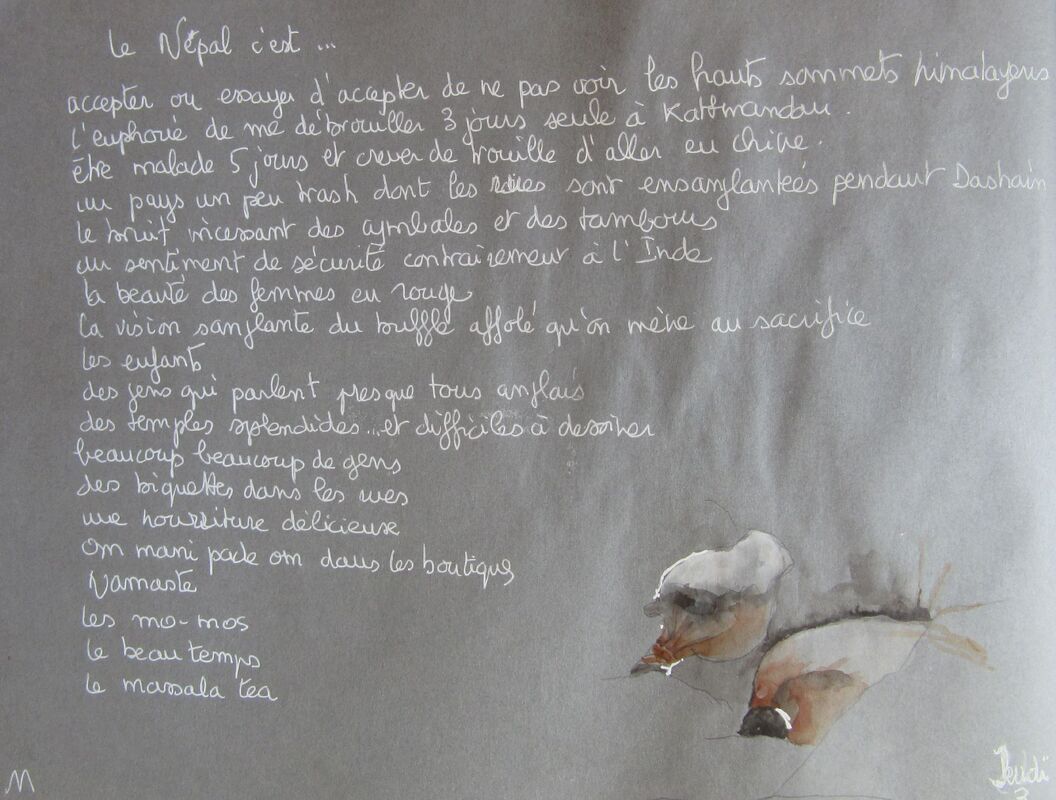 Le Népal c'est ...
accepter ou essayer d'accepter de ne pas voir les hauts sommets himalayens
l'euphorie de me débrouiller 3 jours seule à Kathmandou.
être malade 5 jours et crever de trouille d'aller en Chine.
un pays un peu trash dont les rues sont ensanglantées pendant Dashain
le bruit incessant des cymbales et des tambours
un sentiment de sécurité contrairement à l'Inde
la beauté des femmes en rouge
la vision sanglante du buffle affolé qu'on mène au sacrifice
les enfants
des gens qui parlent presque tous anglais
des temples splendides...et difficiles à dessiner
beaucoup beaucoup de gens
des biquettes dans les rues
une nourriture délicieuse
Om mani padé om dans les boutiques
Namaste
les mo-mos
le beau temps
le massala tea
M
Jeudi
3